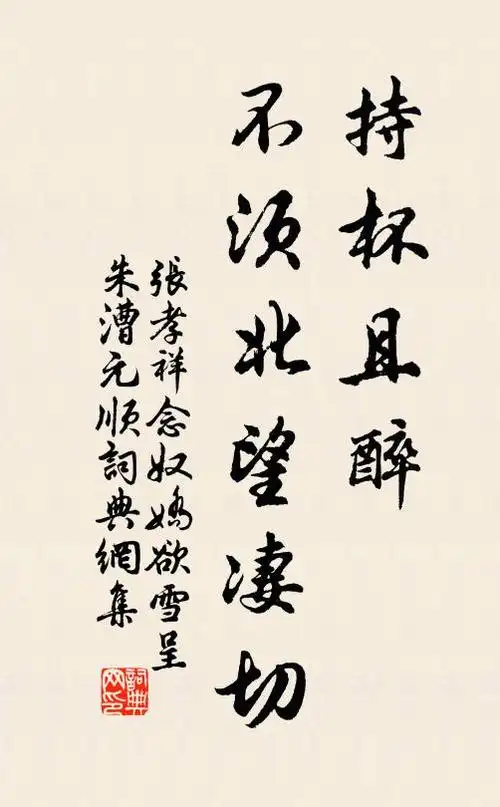 持杯且醉
不须北望凄切
張孝祥念奴嬌欲雪呈
朱漕元順詞典網集
詞典